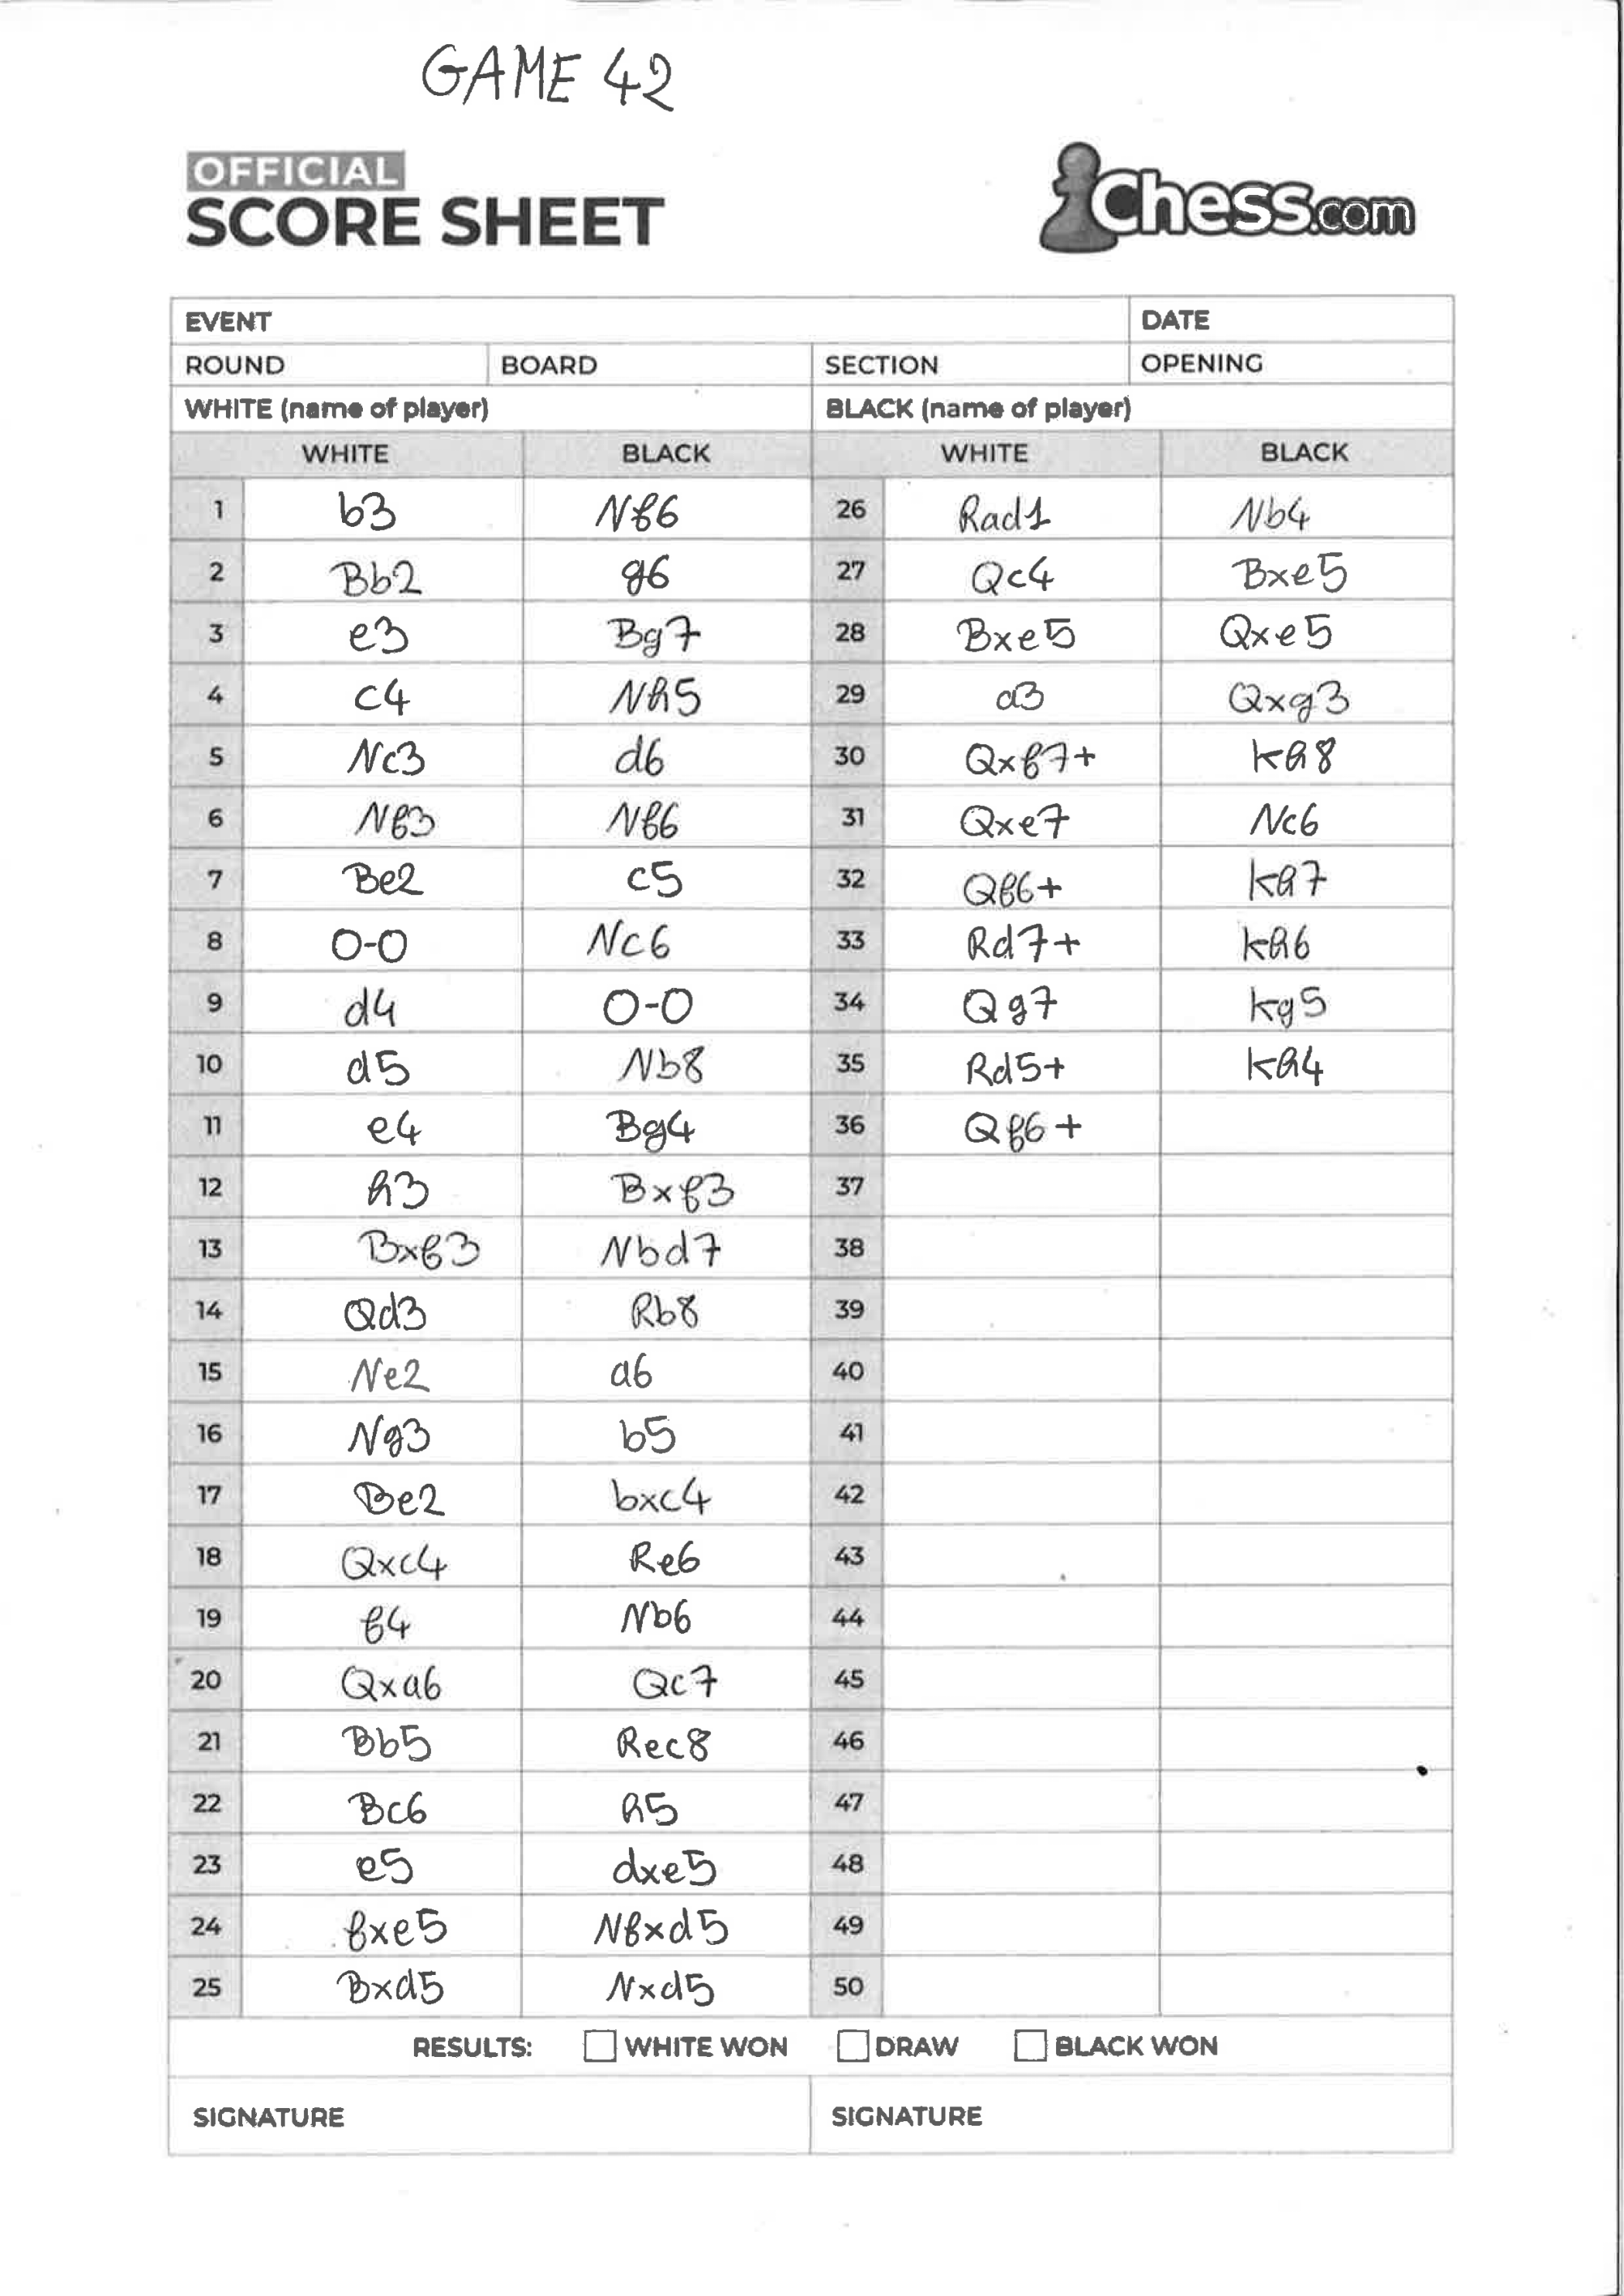 GAME 42
OFFICIAL
SCORE SHEET
Chess.com
EVENT DATE
ROUND BOARD SECTION OPENING
WHITE (name of player) BLACK (name of player)
WHITE BLACK WHITE BLACK
1 b3 Nf6 26 Rad1 Nb4
2 Bb2 g6 27 Qc4 Bxe5
3 e3 Bg7 28 Bxe5 Qxe5
4 c4 Nh5 29 a3 Qxg3
5 Nc3 d6 30 Qxf7+ kh8
6 Nf3 Nf6 31 Qxe7 Nc6
7 Be2 c5 32 Qf6+ kh7
8 O-O Nc6 33 Rd7+ kh6
9 d4 O-O 34 Qg7 kg5
10 d5 Nb8 35 Rd5+ kh4
11 e4 Bg4 36 Qf6+
12 h3 Bxf3 37
13 Bxf3 Nbd7 38
14 Qd3 Rb8 39
15 Ne2 a6 40
16 Ng3 b5 41
17 Be2 bxc4 42
18 Qxc4 Re6 43
19 f4 Nb6 44
20 Qxa6 Qc7 45
21 Bb5 Rec8 46
22 Bc6 h5 47
23 e5 dxe5 48
24 fxe5 Nfxd5 49
25 Bxd5 Nxd5 50
RESULTS: WHITE WON DRAW BLACK WON
SIGNATURE SIGNATURE